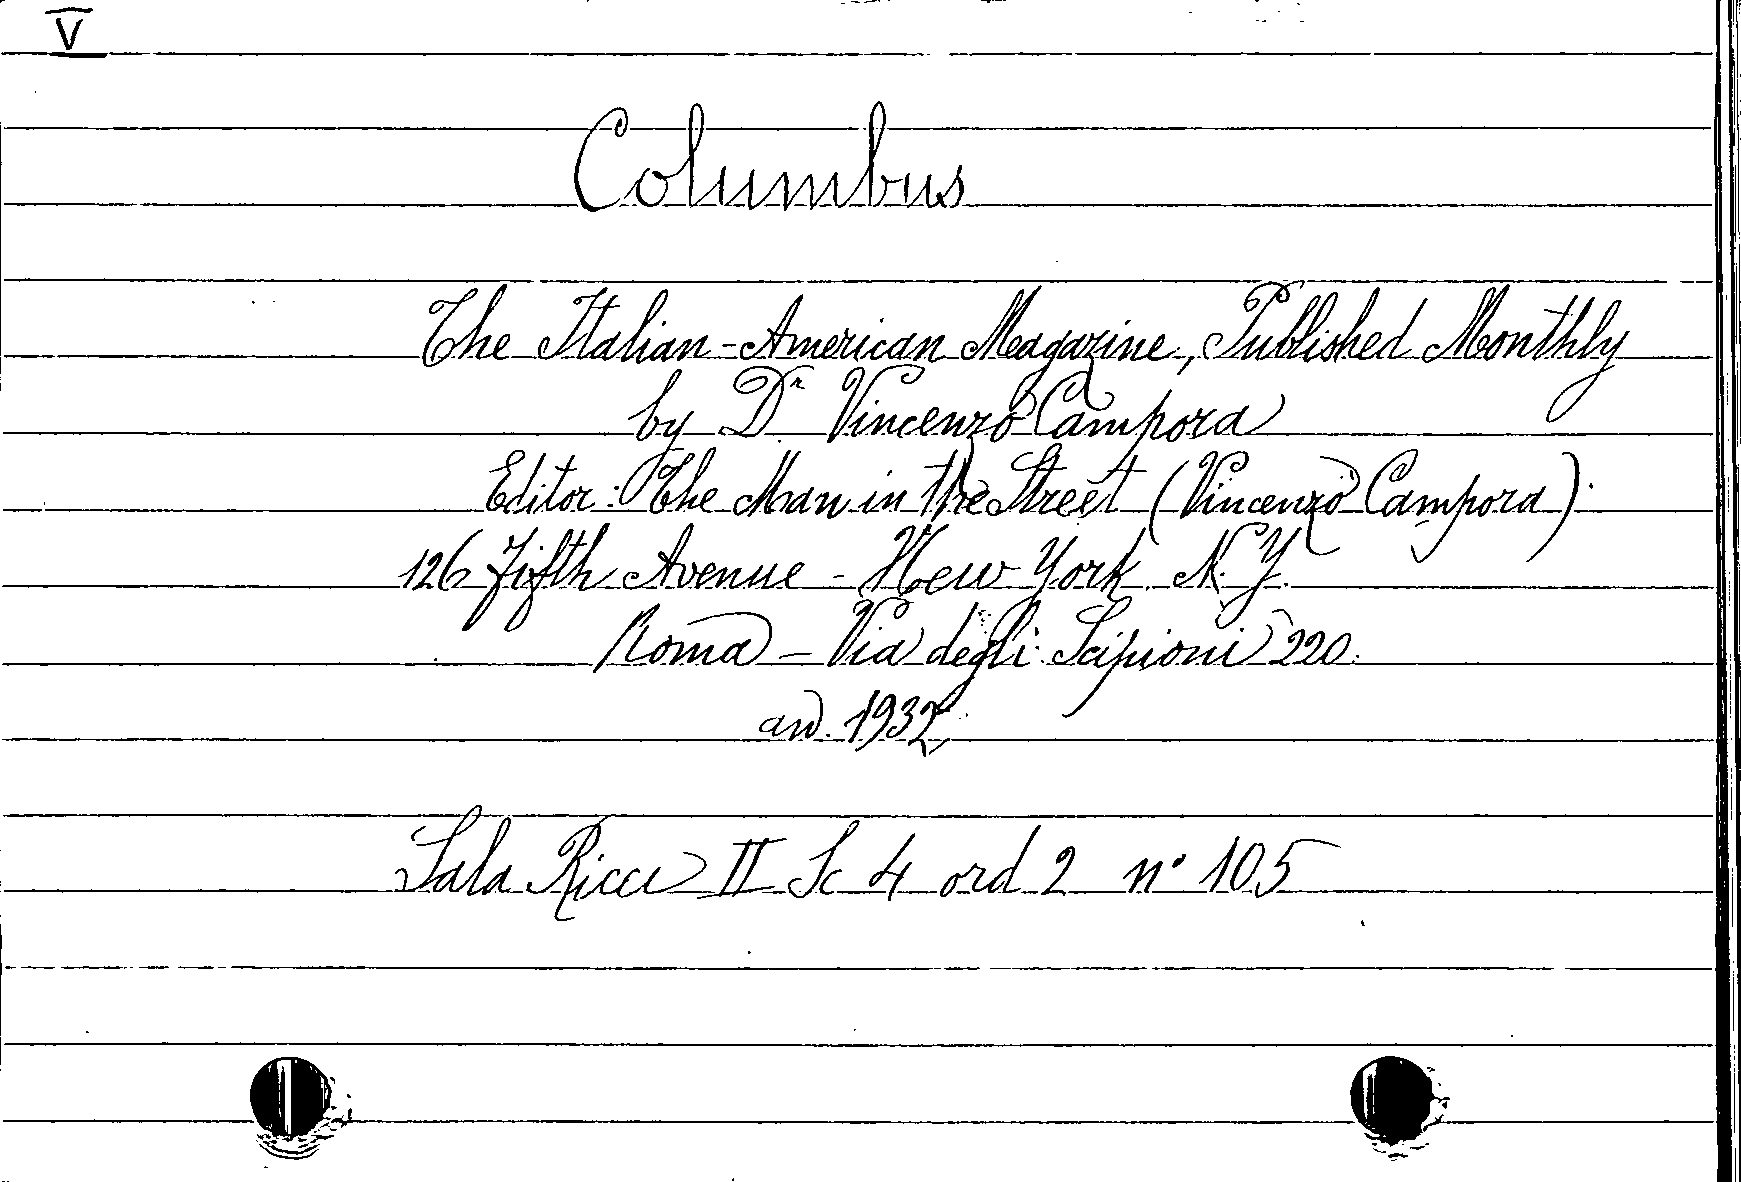 V
Columbus
The Italian-American Magazine, Published Monthly
by Dr. Vincenzo Campora
Editor: The Man in the Street (Vincenzo Campora).
126 Fifth Avenue - New York N. Y.
Roma - Via degli Scipioni 220.
1932,
Sala Ricci II Sc 4 ord 2 n° 105